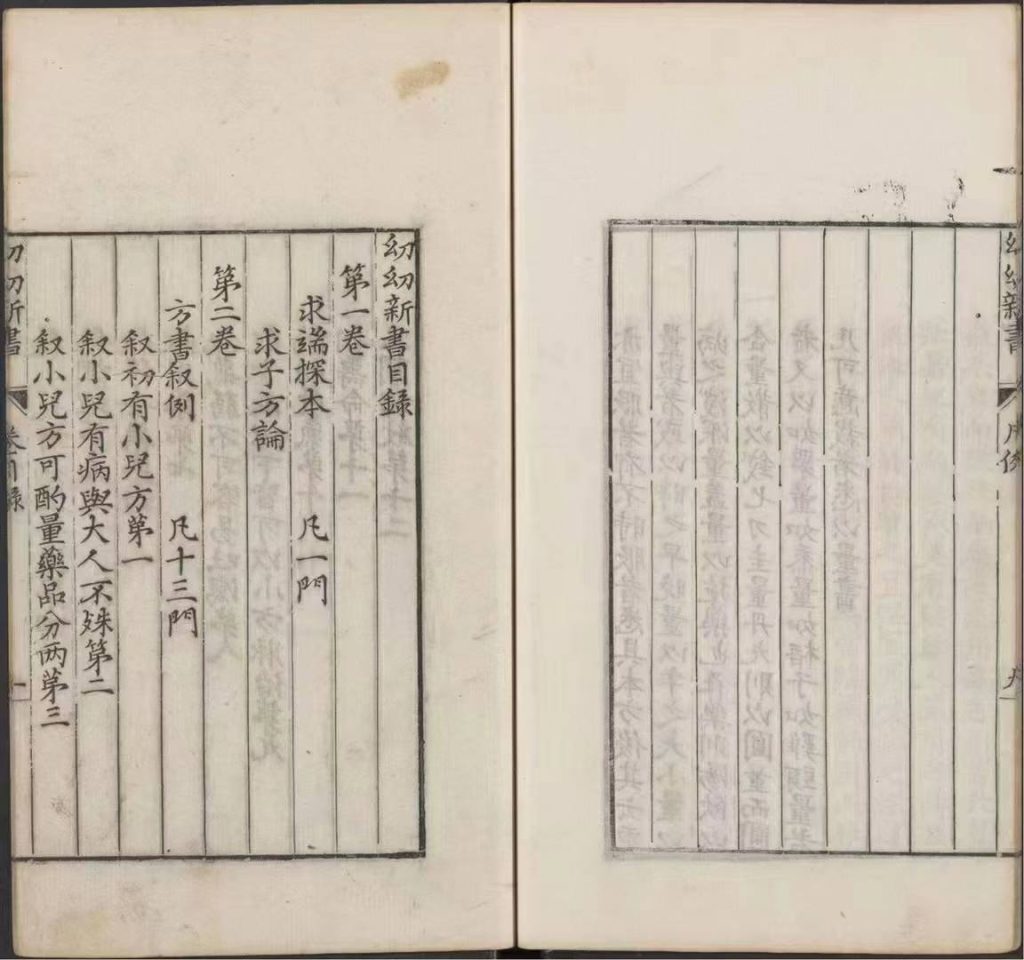 幼幼新書 凡例 九
幼幼新書目錄
第一卷
求端探本 凡一門
求子方論
第二卷
方書叙例 凡十三門
叙初有小兒方第一
叙小兒有病與大人不殊第二
叙小兒方可酌量藥品分两第三
幼幼新書 卷目錄 一